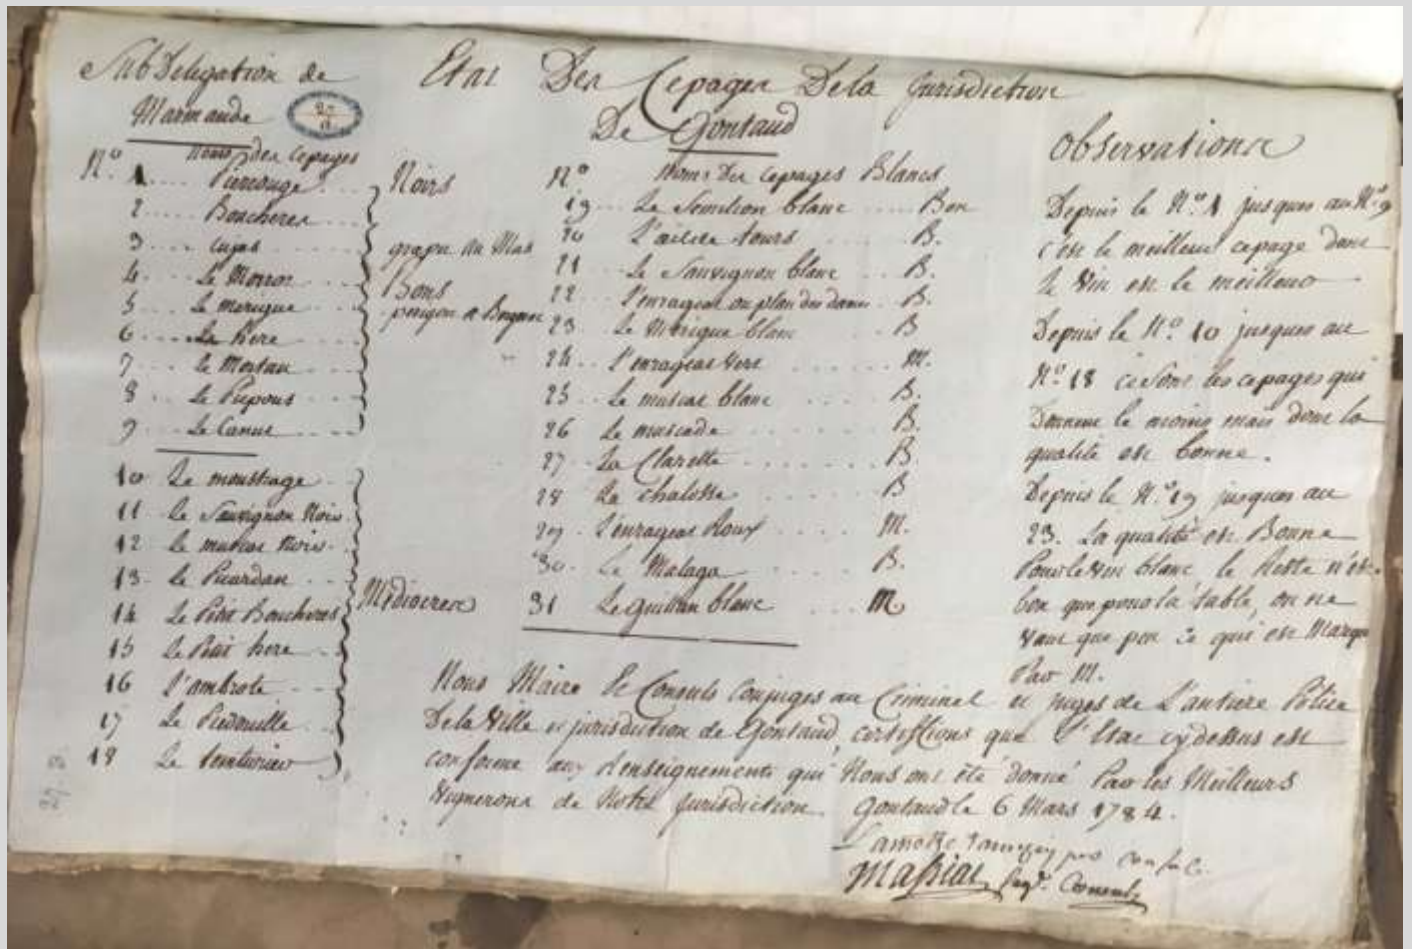 SubDelegation de
Marmande
27
Etat Des Cepages De la Jurisdiction
De Gontaud
Nº. Noms des Cepages
1.... Pierrouge.... Noirs
2.... Boucheres....
3.... Cujas grapu du Mas
4.... Le Morror Bons
5.... Le merigue
6.... Le Here
7.... Le Mostau
8.... Le Piepous
9.... Le Canut
10 Le moustage
11 Le Sauvignon Noir
12 Le muscat Noir
13. Le Picardan
14 Le Petit Boucheres Mediocres
15 Le Petit here
16 L'ambrote
17 Le Piedouille
18 Le teinturier
Nº Noms Des Cepages Blancs
19... Le Semilion blanc ..... Bon
20 tours B.
21 Le Sauvignon blanc .. B.
22 l'enrageat ou plan des dames B.
23 Le Merigue blanc B
24.. l'enrageat vert M.
25 Le muscat blanc B.
26 Le muscade B.
27 La Clarette ....... B.
28 La chalosse B
29 L'enrageat Roux M.
30.. Le Malaga B.
31 Le guillan blanc .... M
Observations
Depuis le Nº. 1 jusques au Nº. 9
c'est le meilleur cepage dont
le vin est le meilleur
Depuis le Nº. 10 jusques au
Nº. 18 ce sont les cepages qui
Donnent le moins mais dont la
qualité est bonne.
Depuis le Nº. 19 jusques au
23. La qualité est Bonne
Pour le vin blanc le Reste n'est
bon que pour la table, ou ne
vaut que peu ce qui est Marqué
Par M.
Nous Maire Et Consuls Conjuges au Criminel et juges de L'antiere Police
De la Ville et jurisdiction de Gontaud, certiffions que L'Etat cy dessus est
conforme aux Renseignements qui Nous ont été donné Par les Meilleurs
Vignerons de Notre Jurisdiction. Gontaud le 6 Mars 1784.
Lamothe consul
Massias Consul
27. B.